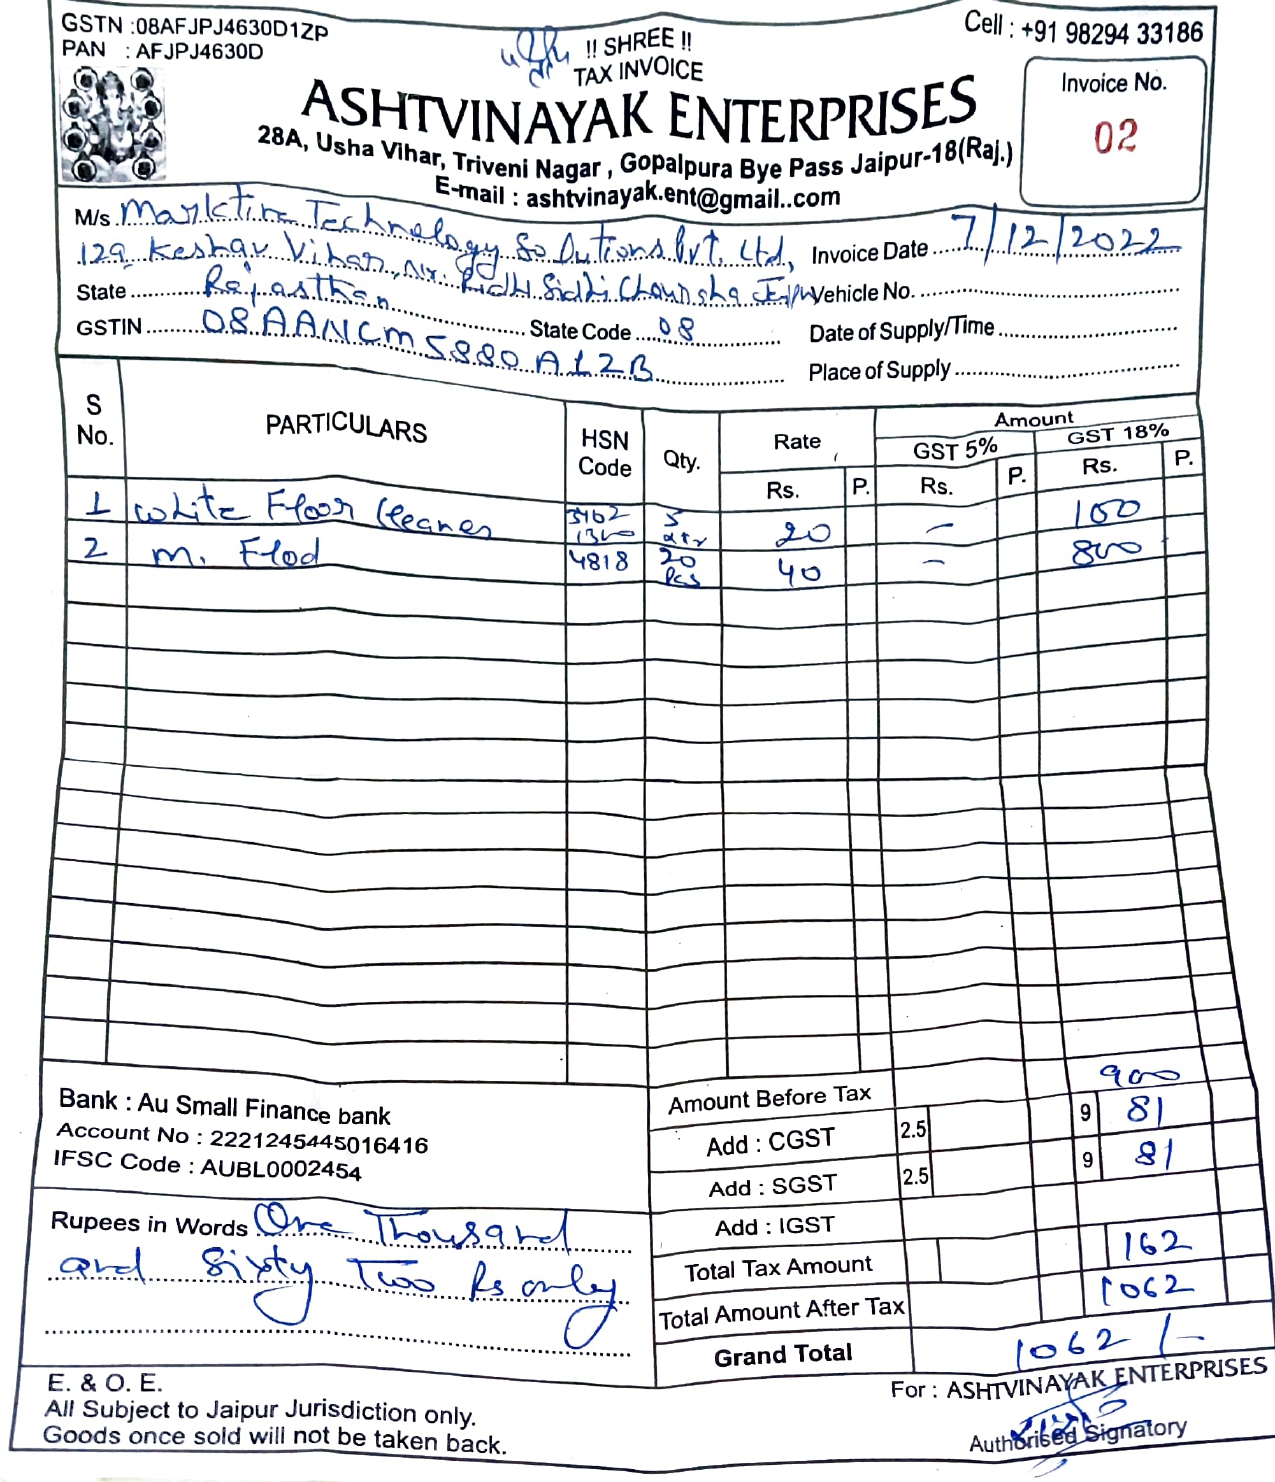 GSTN :08AFJPJ4630D1ZP
PAN : AFJPJ4630D
!! SHREE !!
TAX INVOICE
Cell : +91 98294 33186
ASHTVINAYAK ENTERPRISES
28A, Usha Vihar, Triveni Nagar , Gopalpura Bye Pass Jaipur-18(Raj.)
E-mail : ashtvinayak.ent@gmail..com
Invoice No.
02
M/s Technology Solutions Pvt. Ltd,
129, Keshav Vihar, Nr. Ridhi Sidhi
State Rajasthan
State Code 08
GSTIN 08AANCM5880A1ZB
Invoice Date 7/12/2022
Vehicle No.
Date of Supply/Time
Place of Supply
S No. PARTICULARS HSN Code Qty. Rate Amount
GST 5% GST 18%
Rs. P. Rs. P. Rs. P.
1 White Floor Cleaner 5 20 - 100
2 m. Flod 4818 20 Pcs 40 - 800
Bank : Au Small Finance bank
Account No : 2221245445016416
IFSC Code : AUBL0002454
Rupees in Words One Thousand
and Sixty Two Rs only
Amount Before Tax 900
Add : CGST 2.5 9 81
Add : SGST 2.5 9 81
Add : IGST
Total Tax Amount 162
Total Amount After Tax 1062
Grand Total 1062/-
E. & O. E.
All Subject to Jaipur Jurisdiction only.
Goods once sold will not be taken back.
For : ASHTVINAYAK ENTERPRISES
Authorised Signatory